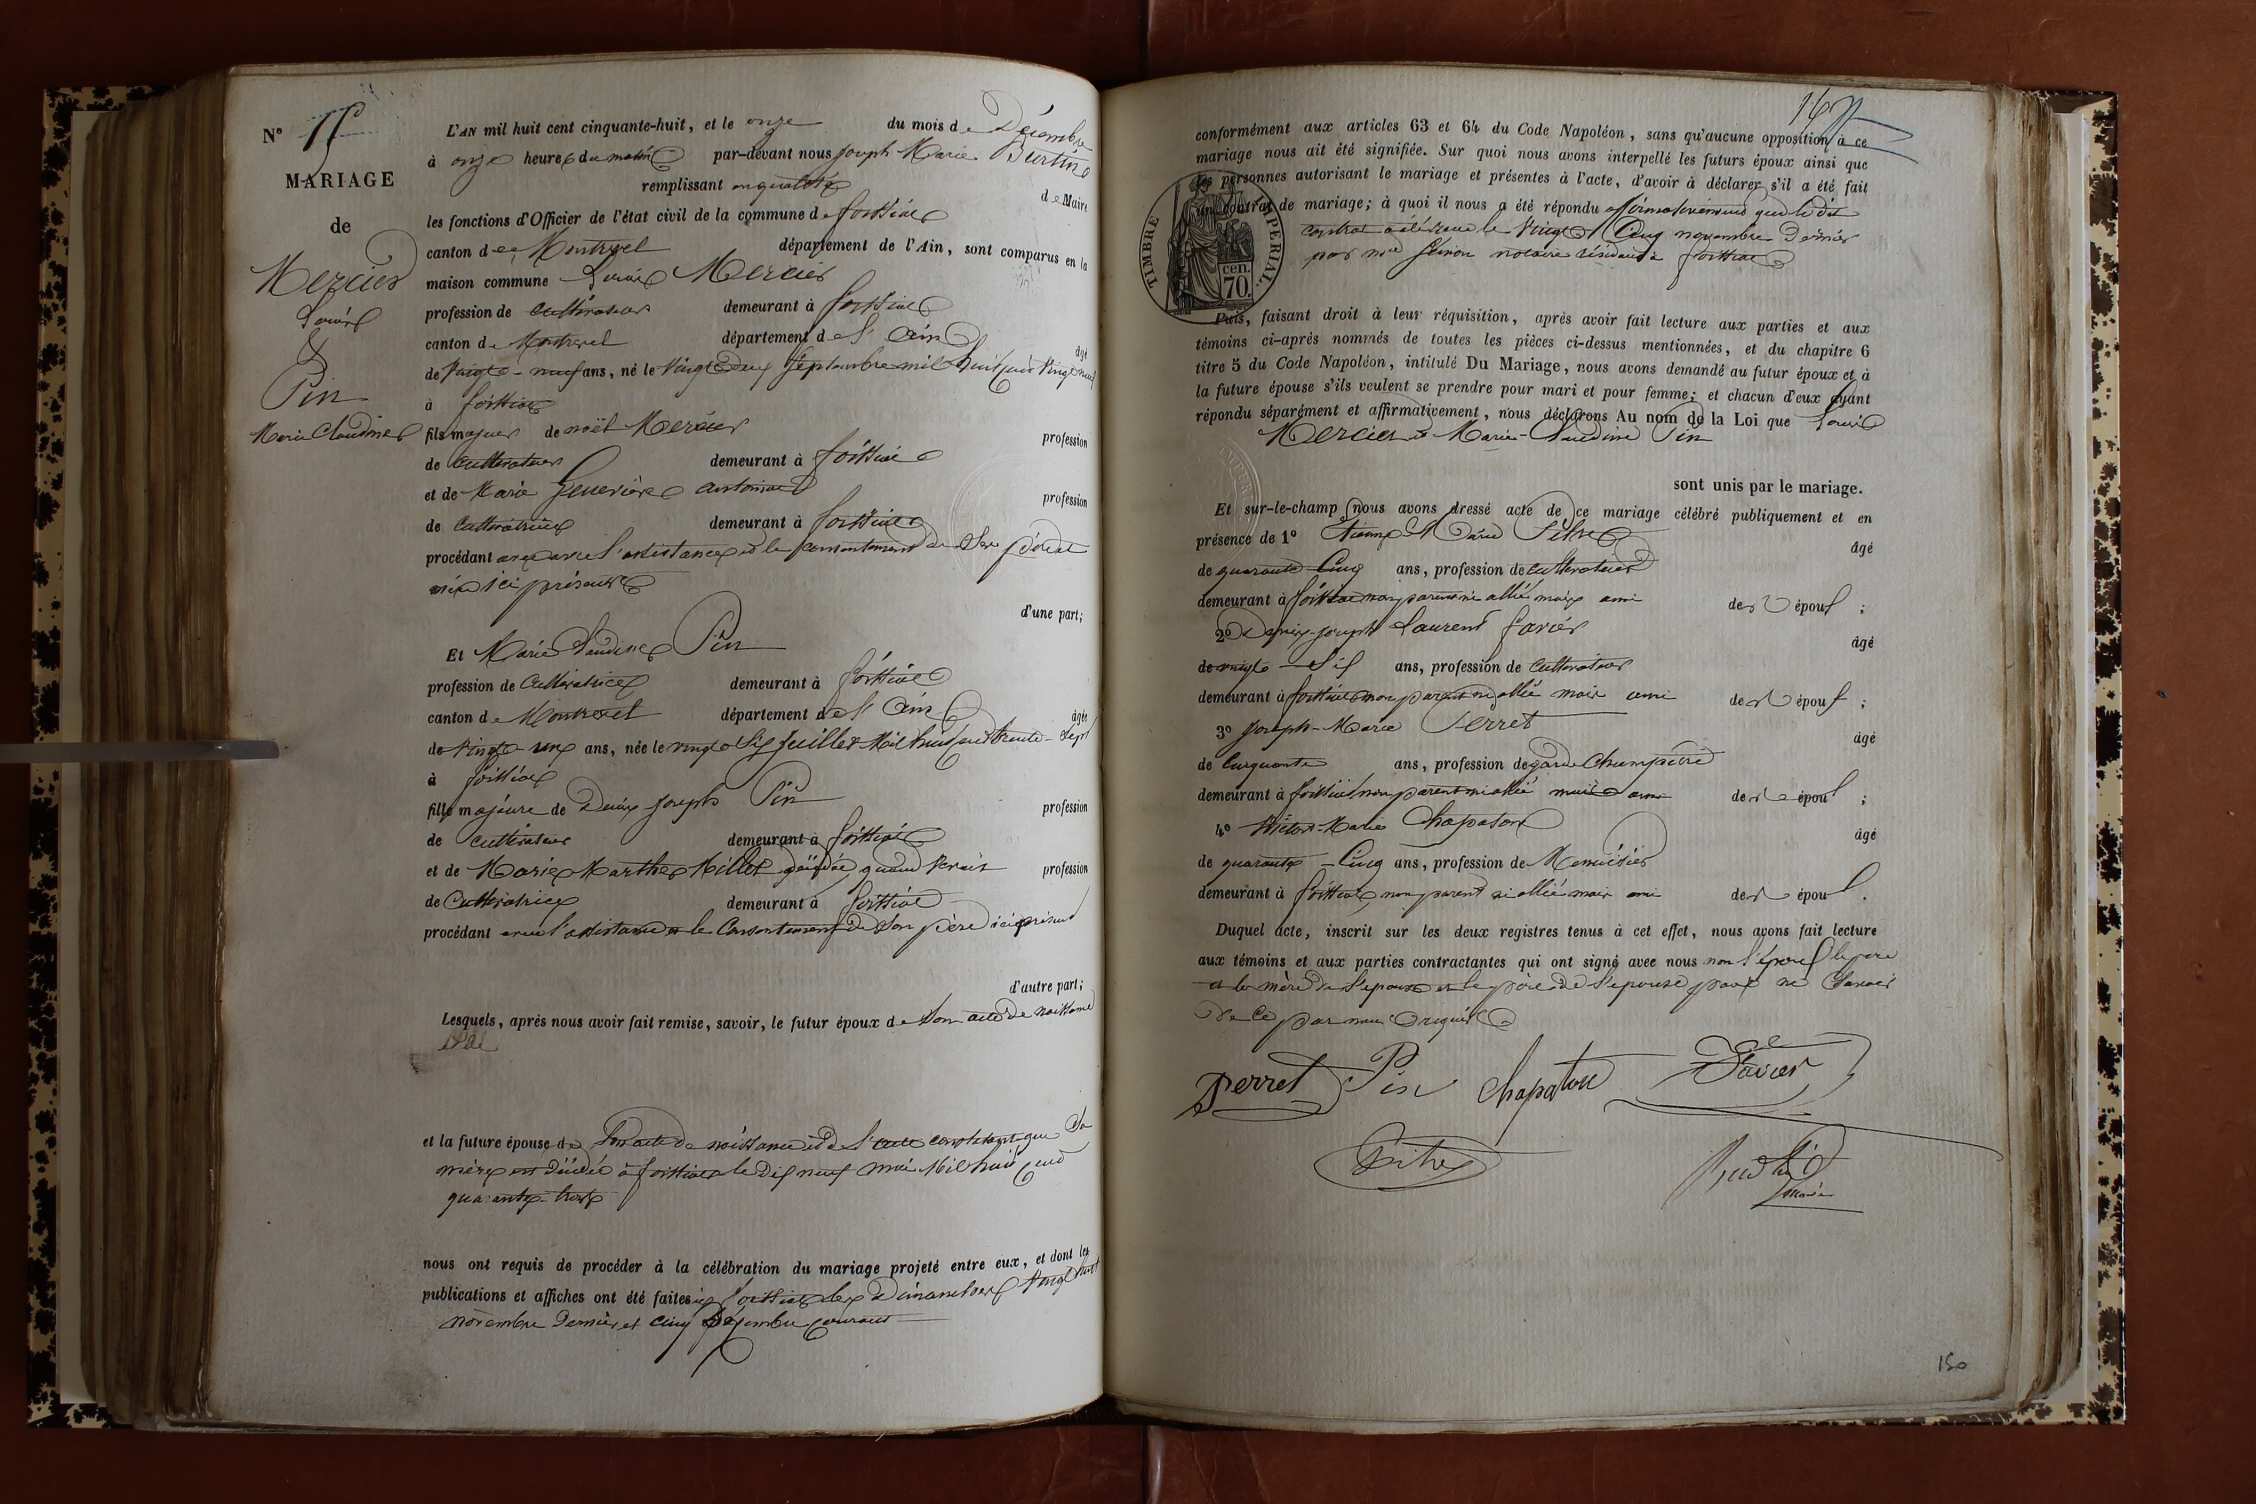 N° 11
MARIAGE
de
Mercier
Louis
&
Pin
Marie Claudine
L'AN mil huit cent cinquante-huit, et le onze du mois de Décembre
à onze heures du matin par-devant nous Joseph Marie Burtin
remplissant en qualité de Maire
les fonctions d'Officier de l'état civil de la commune de foissiat
canton de Montrevel département de l'Ain, sont comparus en la
maison commune Louis Mercier
profession de cultivateur demeurant à foissiat
canton de Montrevel département de l'Ain âgé
de Vingt-neuf ans, né le Vingt deux Septembre mil huit cent Vingt neuf
à foissiat
fils majeur de noël Mercier profession
de cultivateur demeurant à foissiat
et de Marie Geneviève profession
de cultivatrice demeurant à foissiat
procédant avec l'assistance et le consentement de Ses père et
mère ici présents
d'une part;
Et Marie Claudine Pin
profession de Cultivatrice demeurant à foissiat
canton de Montrevel département de l'Ain âgée
de Vingt-un ans, née le vingt Six juillet Mil huit cent trente-Sept
à foissiat
fille majeure de Denis Joseph Pin profession
de cultivateur demeurant à foissiat
et de Marie Marthe Millet décédée, quand vivait profession
de Cultivatrice demeurant à foissiat
procédant avec l'assistance et le Consentement de Son père ici présent
d'autre part;
Lesquels, après nous avoir fait remise, savoir, le futur époux de Son acte de naissance
et la future épouse de Son acte de naissance et de l'acte constatant que Sa
mère est décédée à foissiat le Dix neuf Mai Mil huit Cent
quarante-trois
nous ont requis de procéder à la célébration du mariage projeté entre eux, et dont les
publications et affiches ont été faites à foissiat les Dimanches Vingt huit
novembre Dernier et Cinq Décembre Courant
conformément aux articles 63 et 64 du Code Napoléon, sans qu'aucune opposition à ce
mariage nous ait été signifiée. Sur quoi nous avons interpellé les futurs époux ainsi que
les personnes autorisant le mariage et présentes à l'acte, d'avoir à déclarer s'il a été fait
un contrat de mariage; à quoi il nous a été répondu affirmativement que le dit
contrat a été reçu le Vingt Cinq novembre Dernier
par me notaire résidant à foissiat
TIMBRE IMPERIAL.
70 cen.
Puis, faisant droit à leur réquisition, après avoir fait lecture aux parties et aux
témoins ci-après nommés de toutes les pièces ci-dessus mentionnées, et du chapitre 6
titre 5 du Code Napoléon, intitulé Du Mariage, nous avons demandé au futur époux et à
la future épouse s'ils veulent se prendre pour mari et pour femme; et chacun d'eux ayant
répondu séparément et affirmativement, nous déclarons Au nom de la Loi que Louis
Mercier et Marie-Claudine Pin
sont unis par le mariage.
Et sur-le-champ nous avons dressé acte de ce mariage célébré publiquement et en
présence de 1° Pitre âgé
de quarante Cinq ans, profession de cultivateur
demeurant à foissiat non parent ni allié mais ami des époux;
2° Denis-Joseph Laurent favier âgé
de vingt-Six ans, profession de cultivateur
demeurant à foissiat non parent ni allié mais ami des époux;
3° Joseph-Marie Perret âgé
de Cinquante ans, profession de garde Champêtre
demeurant à foissiat non parent ni allié mais ami des époux;
4° Victor-Marie Chapaton âgé
de quarante-Cinq ans, profession de Menuisier
demeurant à foissiat, non parent ni allié mais ami des époux.
Duquel acte, inscrit sur les deux registres tenus à cet effet, nous avons fait lecture
aux témoins et aux parties contractantes qui ont signé avec nous non l'époux le père
et la mère de l'époux et le père de l'épouse pour ne Savoir
de Ce par nous Requis
Perret Pin Chapaton Favier
Pitre Burtin
maire
150